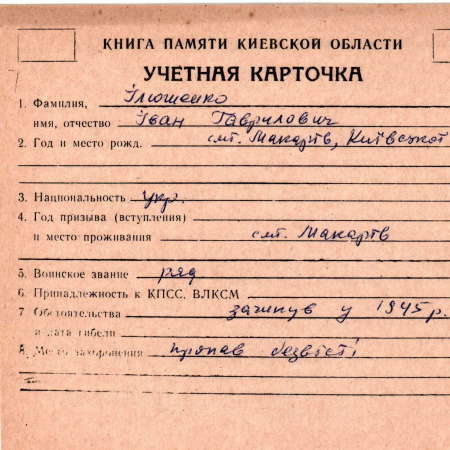 КНИГА ПАМЯТИ КИЕВСКОЙ ОБЛАСТИ
УЧЕТНАЯ КАРТОЧКА
1. Фамилия, Ілюшенко
имя, отчество Іван Гаврилович
2. Год и место рожд. смт. Макарів, Київської
3. Национальность укр.
4. Год призыва (вступления)
и место проживания смт. Макарів
5. Воинское звание ряд
6. Принадлежность к КПСС, ВЛКСМ
7. Обстоятельства загинув у 1945 р.
и дата гибели
8. Место захоронения пропав безвісті